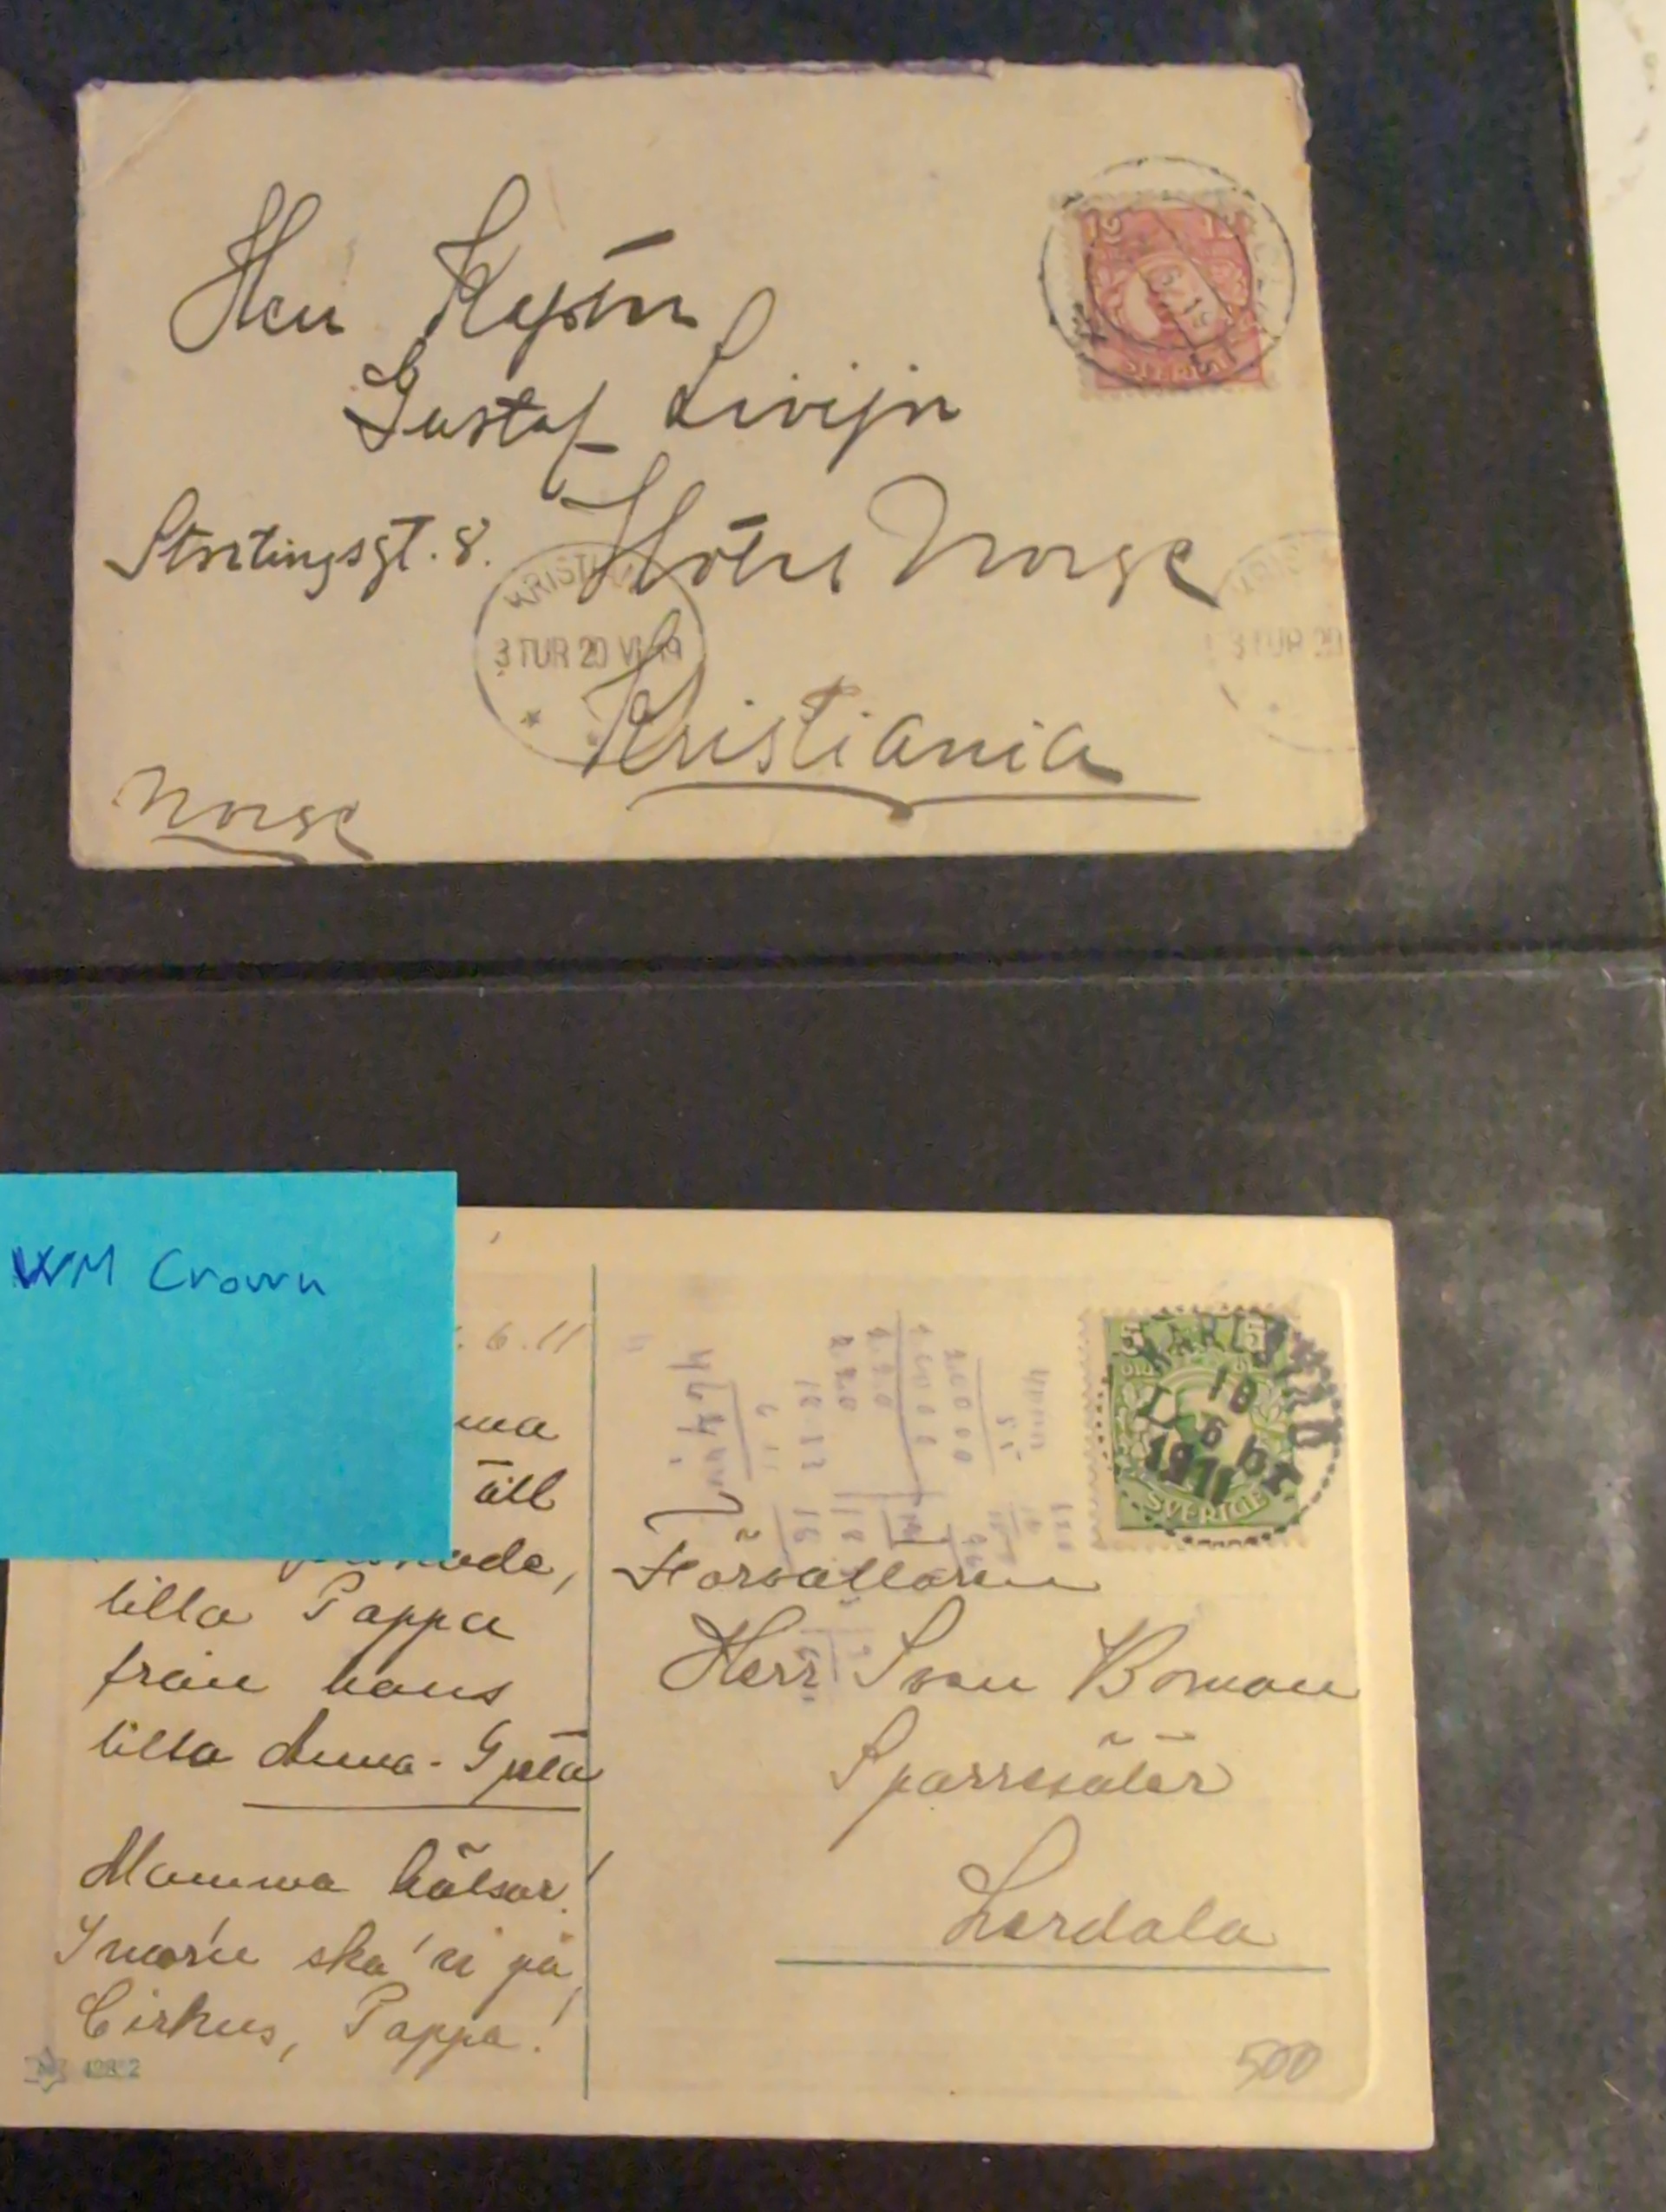 Herr Kapten
Gustaf Livijn
Stortingsgt. 8. Hotel Norge
KRISTIANIA
3 TUR 20 VI 19
Kristiania
Norge
SVERIGE
3 TUR 20
WM Crown
. 6. 11
till
lilla Pappa
från hans
lilla Anna-Greta
Mamma hälsar!
I morn ska' vi på
Cirkus, Pappa!
4982
5
KARLSTAD
18
6
1911
SVERIGE
Förvaltaren
Herr Sven Boman
Sparresäter
Lerdala
500